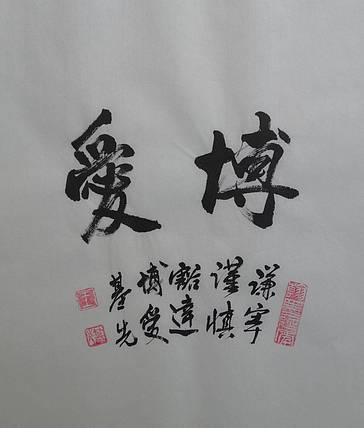 博愛
謙
謹慎
豁達
博愛
基先